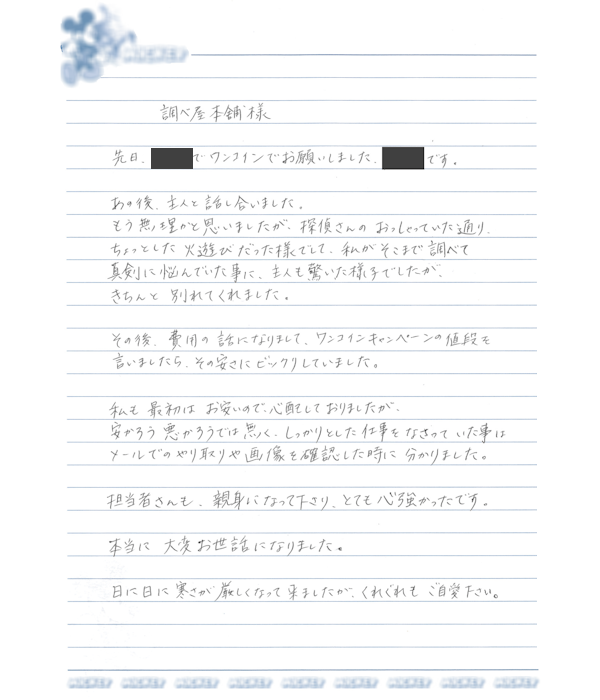 調べ屋本舗様
先日、でワンコインでお願いしました、です。
あの後、主人と話し合いました。
もう無理かと思いましたが、探偵さんのおっしゃっていた通り、
ちょっとした火遊びだった様でして、私がそこまで調べて
真剣に悩んでいた事に、主人も驚いた様子でしたが、
きちんと別れてくれました。
その後、費用の話になりまして、ワンコインキャンペーンの値段を
言いましたら、その安さにビックリしていました。
私も最初はお安いので心配しておりましたが、
安かろう悪かろうでは無く、しっかりとした仕事をなさっていた事は
メールでのやり取りや画像を確認した時に分かりました。
担当者さんも、親身になって下さり、とても心強かったです。
本当に大変お世話になりました。
日に日に寒さが厳しくなって来ましたが、くれぐれもご自愛下さい。